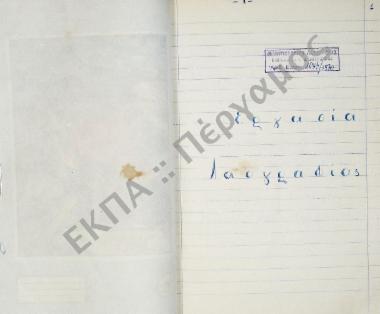 - 1 -
Εργασία
Λαογραφίας
ΕΚΠΑ :: Πέργαμος